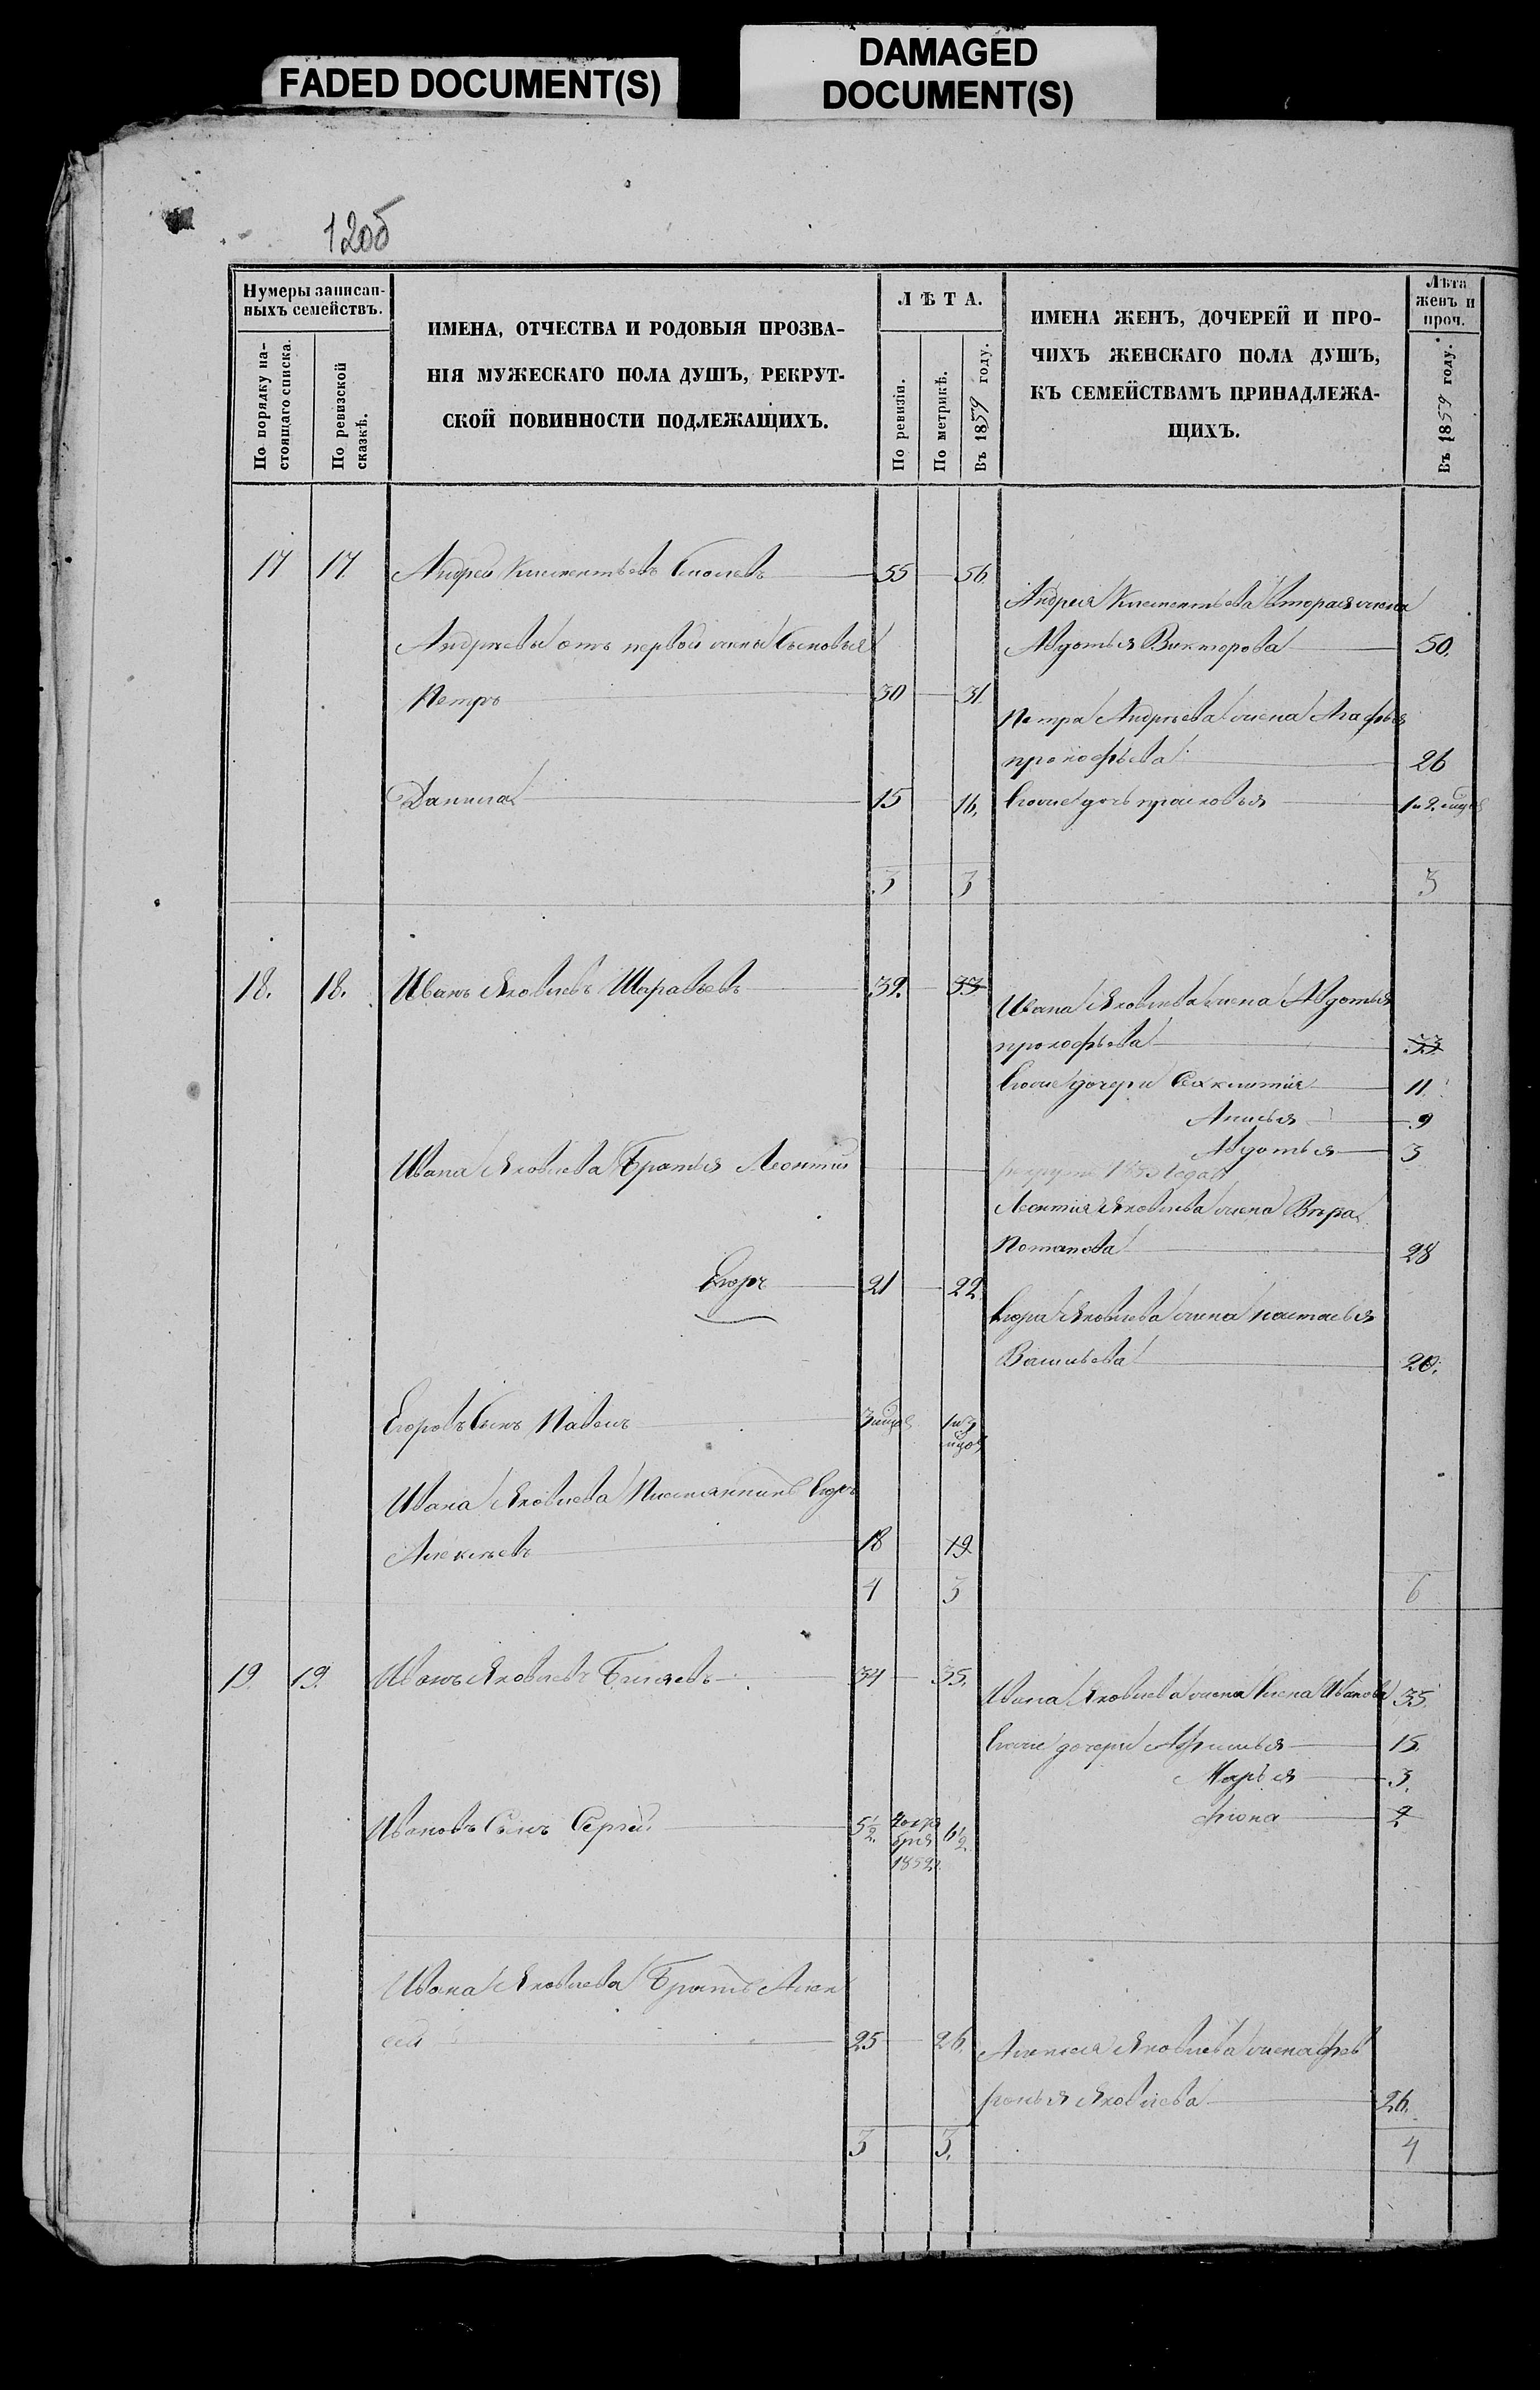 FADED DOCUMENT(S)
DAMAGED
DOCUMENT(S)
120б
Нумеры записан-
ныхъ семействъ.
По порядку на-
стоящаго списка.
По ревизской
сказкѣ.
ИМЕНА, ОТЧЕСТВА И РОДОВЫЯ ПРОЗВА-
НІЯ МУЖЕСКАГО ПОЛА ДУШЪ, РЕКРУТ-
СКОЙ ПОВИННОСТИ ПОДЛЕЖАЩИХЪ.
ЛѢТА.
По ревизіи.
По метрикѣ.
Въ 1859 году.
ИМЕНА ЖЕНЪ, ДОЧЕРЕЙ И ПРО-
ЧИХЪ ЖЕНСКАГО ПОЛА ДУШЪ,
КЪ СЕМЕЙСТВАМЪ ПРИНАДЛЕЖА-
ЩИХЪ.
Лѣта
женъ и
проч.
Въ 1859 году.
17 17. Андрей Климентьевъ 55 56
Андрея Климентьева вторая жена
Андрѣевы отъ первой жены Сыновья
Авдотья Викторова 50.
Петръ 30 31.
Петра Андрѣева жена Агафья
прокофьева 26
Данила 15 16. Егоже дочь прасковья 1 и 2 мцсв
3 3 3
18. 18. Иванъ Яковлевъ Шаравьевъ 32. 33
Ивана Яковлева жена Авдотья
прокофьева 33
Егоже дочери 11.
Анисья 9
Авдотья 3
Ивана Яковлева Братья Леонтий
рекрутъ года
Леонтия Яковлева жена Вѣра
Потапова 28
Егоръ 21 22.
Егора Яковлева жена настасья
Васильева 20.
Егоровъ Сынъ Павелъ 3 мцсв 1 и 3 мцсв
Ивана Яковлева Племянникъ Егоръ
Алексѣевъ 18 19
4 3 6
19. 19. Иванъ Яковлевъ 34 35.
Ивана Яковлева жена Елена Иванова 35.
Егоже дочери Афимья 15.
Марья 3.
2
Ивановъ Сынъ Сергѣй 5½. 6½.
Ивана Яковлева Братъ Алек
сей 25 26.
Алексея Яковлева жена Фев
ронья Яковлева 26.
3 3. 4